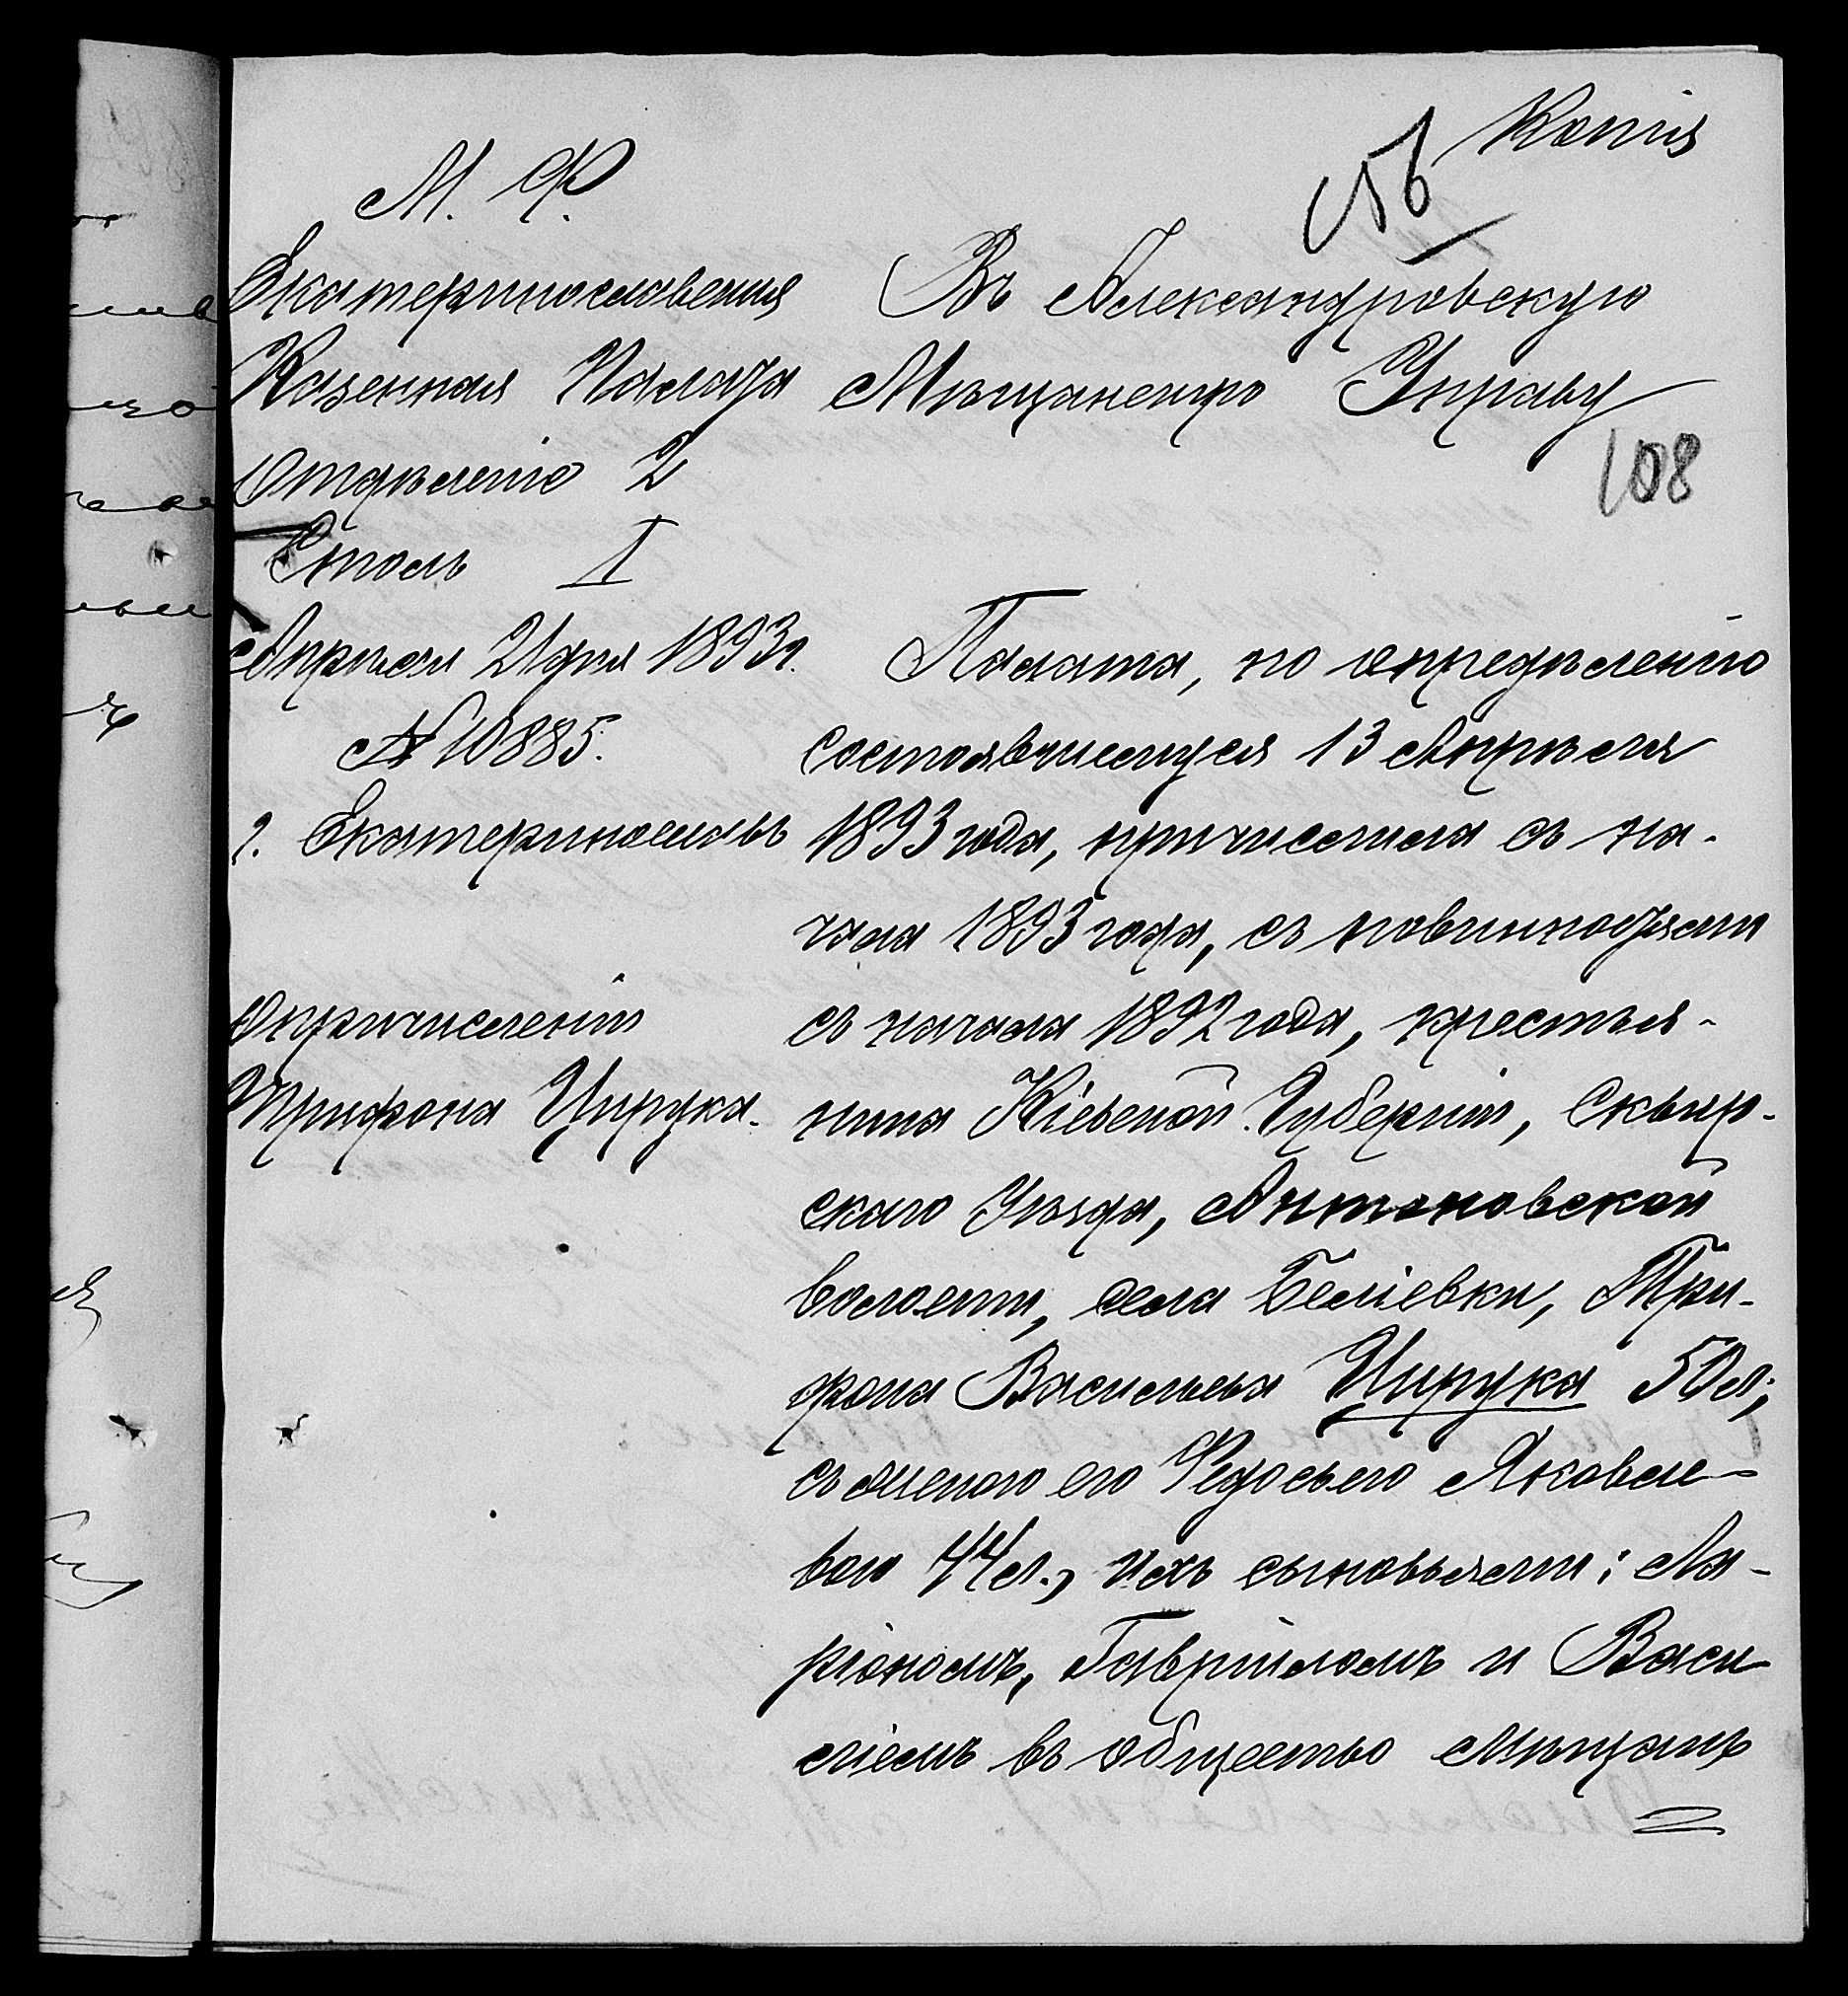 Копія
56
М. Ф.
Екатеринославская
Казенная Палата
Отдѣленіе 2
Столъ I
Апрѣля 21 дня 1893 г.
№ 10885.
г. Екатеринославъ
О причисленіи
Трифона Цирука.
Въ Александровскую
Мѣщанскую Управу
108
Палата, по опредѣленію
состоявшемуся 13 Апрѣля
1893 года, причислила съ на-
чала 1893 года, съ повинностями
съ начала 1892 года, крестья-
нина Кіевской Губерніи, Сквир-
скаго Уѣзда, Антоновской
волости, села Беліевки, Три-
фона Васильева Цирука 50 л;
съ женою его Федосьею Яковле-
вою 44 л., ихъ сыновьями: Ла-
ріономъ, Гавріиломъ и Васи
ліемъ въ общество мѣщанъ